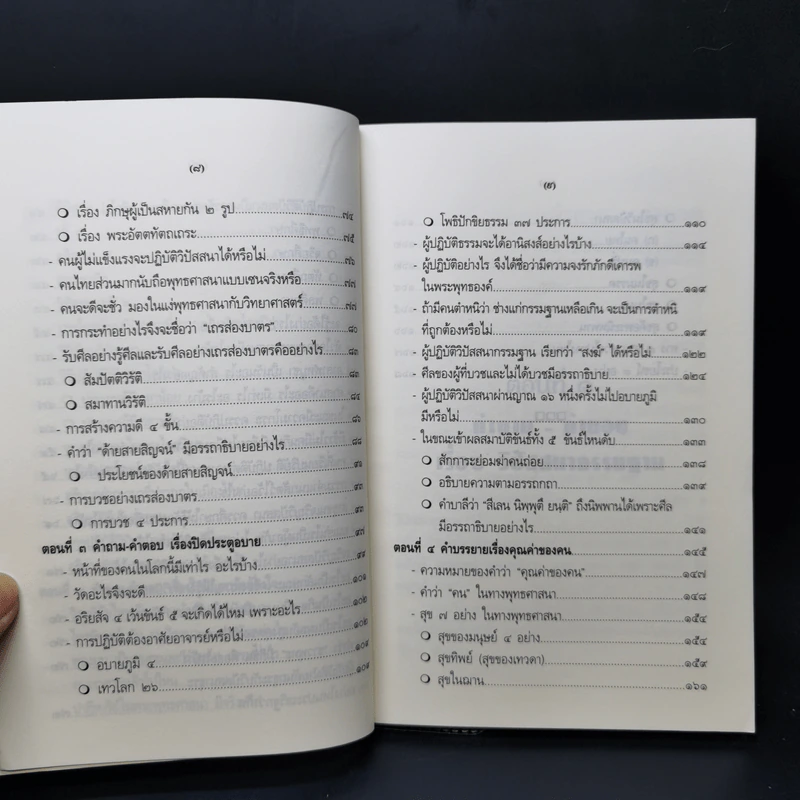 (๘)
❍ เรื่อง ภิกษุผู้เป็นสหายกัน ๒ รูป...๗๔
❍ เรื่อง พระอัตตทัตถเถระ...๗๕
- คนผู้ไม่แข็งแรงจะปฏิบัติวิปัสสนาได้หรือไม่...๗๖
- คนไทยส่วนมากนับถือพุทธศาสนาแบบเซนจริงหรือ...๗๗
- คนจะดีจะชั่ว มองในแง่พุทธศาสนากับวิทยาศาสตร์...๗๗
- การกระทำอย่างไรจึงจะชื่อว่า "เถรส่องบาตร"...๘๐
- รับศีลอย่างรู้ศีลและรับศีลอย่างเถรส่องบาตรคืออย่างไร...๘๓
❍ สัมปัตติวิรัติ...๘๓
❍ สมาทานวิรัติ...๘๔
- การสร้างความดี ๔ ขั้น...๘๖
- คำว่า "ด้ายสายสิญจน์" มีอรรถาธิบายอย่างไร...๘๘
❍ ประโยชน์ของด้ายสายสิญจน์...๙๒
- การบวชอย่างเถรส่องบาตร...๙๓
❍ การบวช ๔ ประการ...๙๓
ตอนที่ ๓ คำถาม-คำตอบ เรื่องปิดประตูอบาย...๙๗
- หน้าที่ของคนในโลกนี้มีเท่าไร อะไรบ้าง...๙๙
- วัดอะไรจึงจะดี...๑๐๑
- อริยสัจ ๔ เว้นขันธ์ ๕ จะเกิดได้ไหม เพราะอะไร...๑๐๒
- การปฏิบัติต้องอาศัยอาจารย์หรือไม่...๑๐๔
❍ อบายภูมิ ๔...
❍ เทวโลก ๒๖...
(๙)
❍ โพธิปักขิยธรรม ๓๗ ประการ...๑๑๐
- ผู้ปฏิบัติธรรมจะได้อานิสงส์อย่างไรบ้าง...๑๑๔
- ผู้ปฏิบัติอย่างไร จึงได้ชื่อว่ามีความจงรักภักดีเคารพ
ในพระพุทธองค์...๑๑๙
- ถ้ามีคนตำหนิว่า ช่างแก่กรรมฐานเหลือเกิน จะเป็นการตำหนิ
ที่ถูกต้องหรือไม่...๑๑๙
- ผู้ปฏิบัติวิปัสสนากรรมฐาน เรียกว่า "สงฆ์" ได้หรือไม่...๑๒๒
- ศีลของผู้ที่บวชและไม่ได้บวชมีอรรถาธิบาย...๑๒๔
- ผู้ปฏิบัติวิปัสสนาผ่านญาณ ๑๖ หนึ่งครั้งไม่ไปอบายภูมิ
มีหรือไม่...๑๓๐
- ในขณะเข้าผลสมาบัติขันธ์ทั้ง ๕ ขันธ์ไหนดับ...๑๓๓
❍ สักการะย่อมฆ่าคนถ่อย...๑๓๘
❍ อธิบายความตามอรรถกถา...๑๓๙
❍ คำบาลีว่า "สีเลน นิพฺพุตึ ยนฺติ" ถึงนิพพานได้เพราะศีล
มีอรรถาธิบายอย่างไร...๑๔๑
ตอนที่ ๔ คำบรรยายเรื่องคุณค่าของคน...๑๔๕
- ความหมายของคำว่า "คุณค่าของคน"...๑๔๗
- คำว่า "คน" ในทางพุทธศาสนา...๑๔๘
- สุข ๗ อย่าง ในทางพุทธศาสนา...๑๕๔
❍ สุขของมนุษย์ ๔ อย่าง...๑๕๔
❍ สุขทิพย์ (สุขของเทวดา)...๑๕๙
❍ สุขในฌาน...๑๖๑